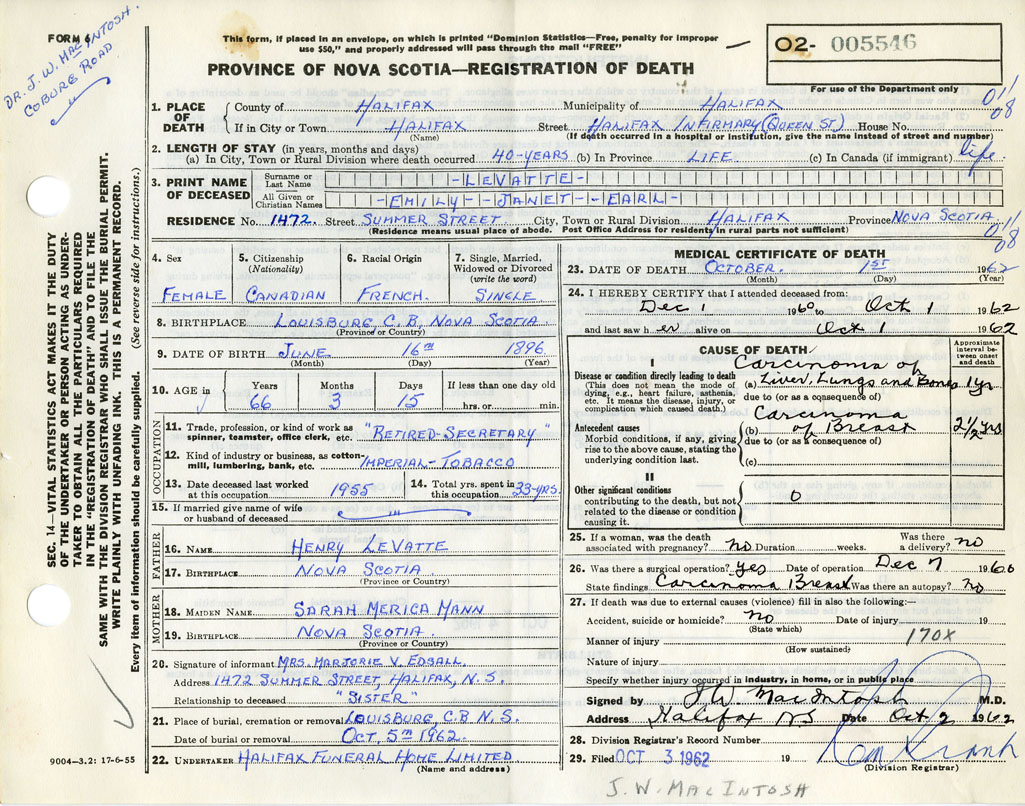 FORM 6
DR. J. W. MACINTOSH.
COBURG ROAD
This form, if placed in an envelope, on which is printed "Dominion Statistics—Free, penalty for improper
use $50," and properly addressed will pass through the mail "FREE"
02- 005546
PROVINCE OF NOVA SCOTIA—REGISTRATION OF DEATH
For use of the Department only
1. PLACE OF DEATH
County of HALIFAX Municipality of HALIFAX 011/08
If in City or Town HALIFAX Street HALIFAX INFIRMARY (QUEEN ST) House No.
(Name) (If death occurred in a hospital or institution, give the name instead of street and number)
2. LENGTH OF STAY (in years, months and days)
(a) In City, Town or Rural Division where death occurred 40-YEARS (b) In Province LIFE (c) In Canada (if immigrant) life.
3. PRINT NAME OF DECEASED
Surname or Last Name -LEVATTE-
All Given or Christian Names -EMILY-JANET-EARL-
RESIDENCE No. 1472. Street SUMMER STREET City, Town or Rural Division HALIFAX Province NOVA SCOTIA
(Residence means usual place of abode. Post Office Address for residents in rural parts not sufficient) 011/08
4. Sex 5. Citizenship (Nationality) 6. Racial Origin 7. Single, Married, Widowed or Divorced (write the word)
FEMALE CANADIAN FRENCH. SINGLE
8. BIRTHPLACE LOUISBURG, C.B, NOVA SCOTIA
(Province or Country)
9. DATE OF BIRTH JUNE 16TH 1896
(Month) (Day) (Year)
10. AGE in Years Months Days If less than one day old
66 3 15 hrs. or min.
OCCUPATION
11. Trade, profession, or kind of work as
spinner, teamster, office clerk, etc. "RETIRED-SECRETARY"
12. Kind of industry or business, as cotton-
mill, lumbering, bank, etc. IMPERIAL-TOBACCO
13. Date deceased last worked at this occupation 1955 14. Total yrs. spent in this occupation 33-YRS.
15. If married give name of wife
or husband of deceased
FATHER
16. NAME HENRY LEVATTE
17. BIRTHPLACE NOVA SCOTIA
(Province or Country)
MOTHER
18. MAIDEN NAME SARAH MERICA MANN
19. BIRTHPLACE NOVA SCOTIA.
(Province or Country)
20. Signature of informant MRS. MARJORIE V. EDSALL.
Address 1472 SUMMER STREET, HALIFAX, N.S.
Relationship to deceased "SISTER"
21. Place of burial, cremation or removal LOUISBURG, C.B N.S.
Date of burial or removal OCT, 5TH 1962.
22. UNDERTAKER HALIFAX FUNERAL HOME LIMITED
(Name and address)
9004—3.2: 17-6-55
MEDICAL CERTIFICATE OF DEATH
23. DATE OF DEATH OCTOBER. 1ST 1962
(Month) (Day) (Year)
24. I HEREBY CERTIFY that I attended deceased from:
Dec 1 1960 to Oct 1 1962
and last saw her alive on Oct 1 1962
CAUSE OF DEATH
Approximate interval between onset and death
I
Disease or condition directly leading to death
(This does not mean the mode of
dying, e.g., heart failure, asthenia,
etc. It means the disease, injury, or
complication which caused death.)
Carcinoma of
(a) Liver, Lungs and Bones 1 yr
due to (or as a consequence of)
Antecedent causes
Morbid conditions, if any, giving
rise to the above cause, stating the
underlying condition last.
Carcinoma
(b) of Breast 2½ yrs
due to (or as a consequence of)
(c)
II
Other significant conditions
contributing to the death, but not
related to the disease or condition
causing it.
0
25. If a woman, was the death
associated with pregnancy? no Duration weeks. Was there a delivery? no
26. Was there a surgical operation? yes Date of operation Dec 7 1960
State findings Carcinoma Breast Was there an autopsy? No
27. If death was due to external causes (violence) fill in also the following:—
Accident, suicide or homicide? no Date of injury 19
(State which)
Manner of injury 170X
(How sustained)
Nature of injury
Specify whether injury occurred in industry, in home, or in public place
Signed by J W. MacIntosh M.D.
Address Halifax NS Date Oct 2 1962
28. Division Registrar's Record Number
29. Filed OCT 3 1962 19
(Division Registrar)
J. W. MACINTOSH
SEC. 14—VITAL STATISTICS ACT MAKES IT THE DUTY
OF THE UNDERTAKER OR PERSON ACTING AS UNDER-
TAKER TO OBTAIN ALL THE PARTICULARS REQUIRED
IN THE "REGISTRATION OF DEATH" AND TO FILE THE
SAME WITH THE DIVISION REGISTRAR WHO SHALL ISSUE THE BURIAL PERMIT.
WRITE PLAINLY WITH UNFADING INK. THIS IS A PERMANENT RECORD.
Every item of information should be carefully supplied. (See reverse side for instructions.)